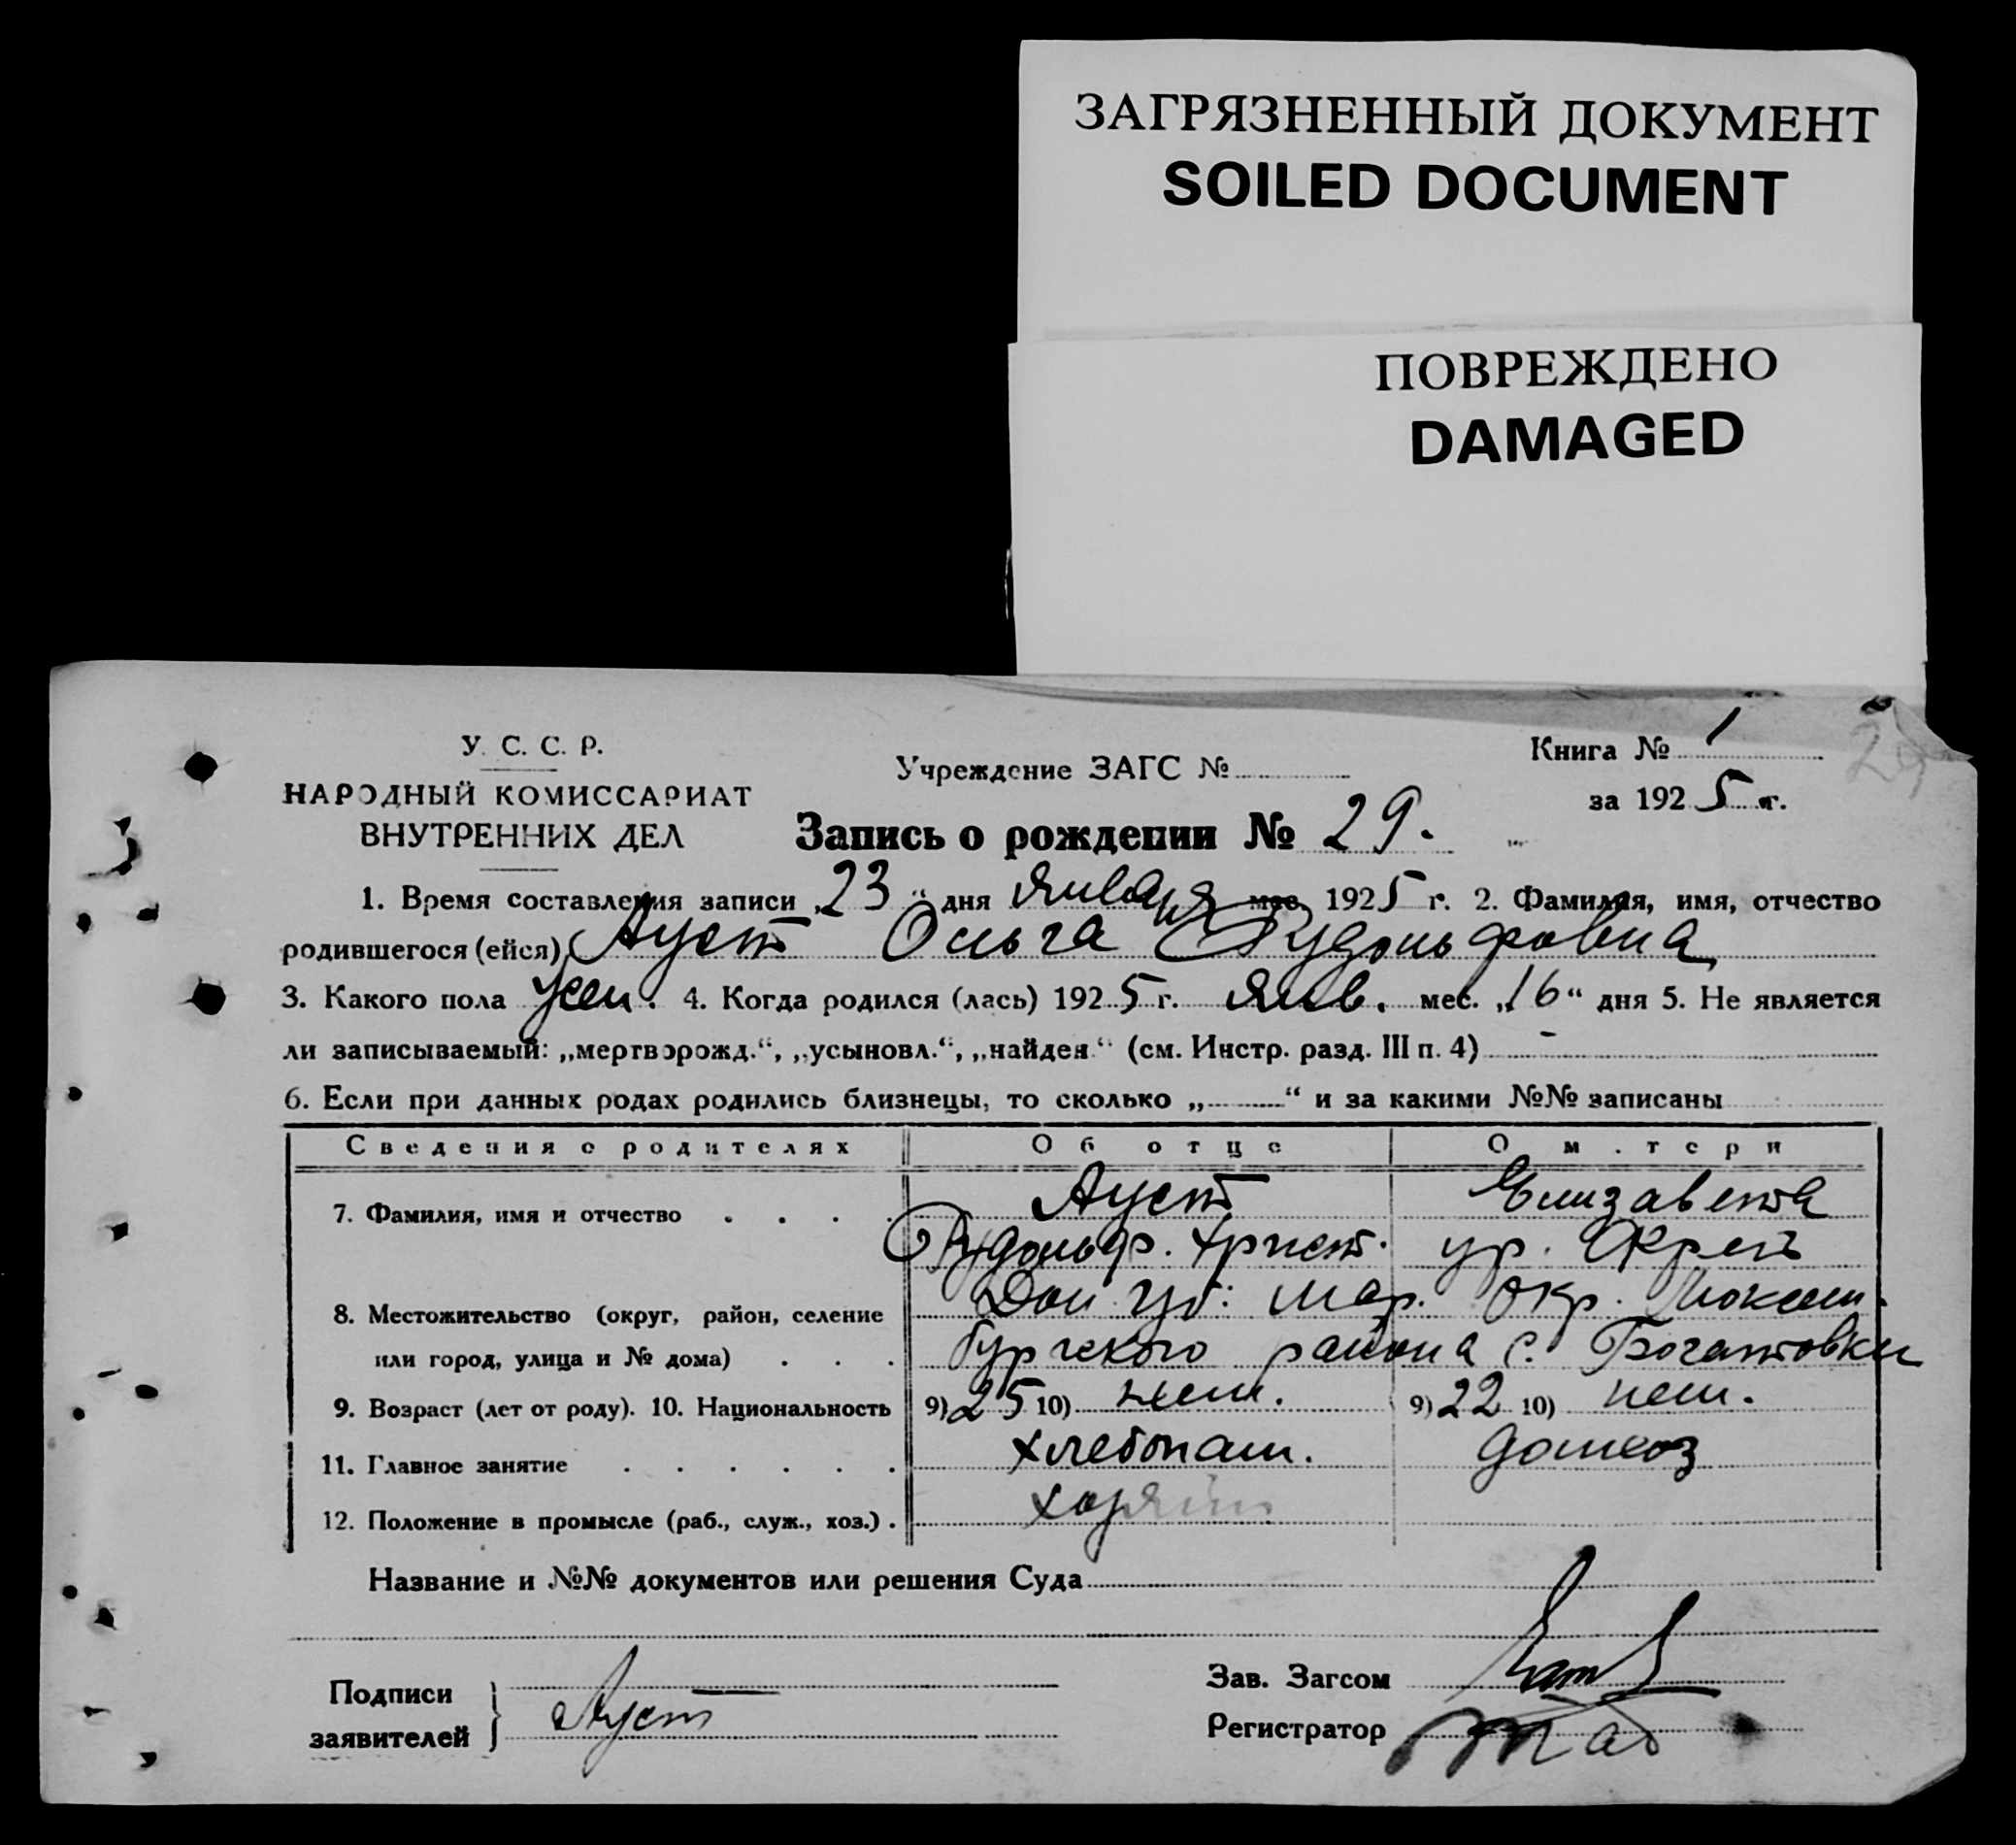 ЗАГРЯЗНЕННЫЙ ДОКУМЕНТ
SOILED DOCUMENT
ПОВРЕЖДЕНО
DAMAGED
У. С. С. Р.
НАРОДНЫЙ КОМИССАРИАТ
ВНУТРЕННИХ ДЕЛ
Учреждение ЗАГС №
Книга № 1
за 1925 г.
Запись о рождении № 29.
1. Время составления записи „23“ дня января мес. 1925 г. 2. Фамилия, имя, отчество
родившегося (ейся) Ауст Ольга Рудольфовна
3. Какого пола жен. 4. Когда родился (лась) 1925 г. янв. мес. „16“ дня 5. Не является
ли записываемый: „мертворожд.“, „усыновл.“, „найден.“ (см. Инстр. разд. III п. 4) -
6. Если при данных родах родились близнецы, то сколько „ “ и за какими №№ записаны
Сведения о родителях Об отце О м.тери
7. Фамилия, имя и отчество . . . . Ауст Елизавета
Рудольф. Христ. ур.
8. Местожительство (округ, район, селение Дон. губ. Мар. окр. Люксем-
или город, улица и № дома) . . . бургского района с. Богатовки
9. Возраст (лет от роду). 10. Национальность 9) 25 10) нем. 9) 22 10) нем.
11. Главное занятие . . . . . . хлебопаш. домхоз
12. Положение в промысле (раб., служ., хоз.) .
Название и №№ документов или решения Суда
Подписи
заявителей } Ауст
Зав. Загсом
Регистратор